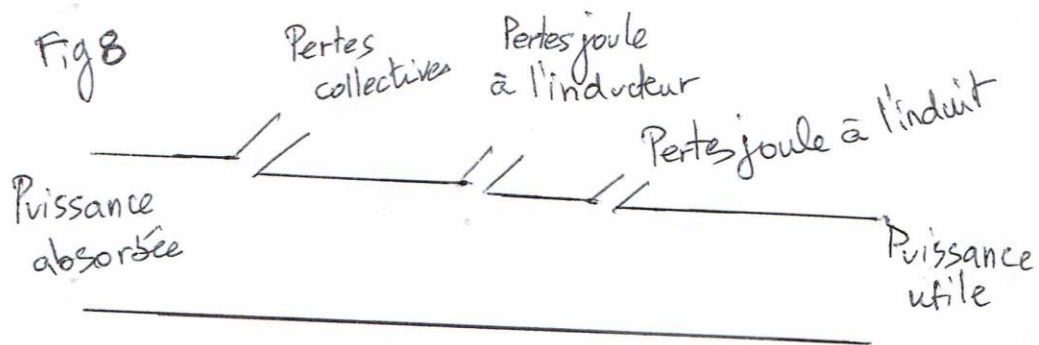 Fig 8
Pertes
collectives
Pertes joule
à l'inducteur
Pertes joule à l'induit
Puissance
absorbée
Puissance
utile